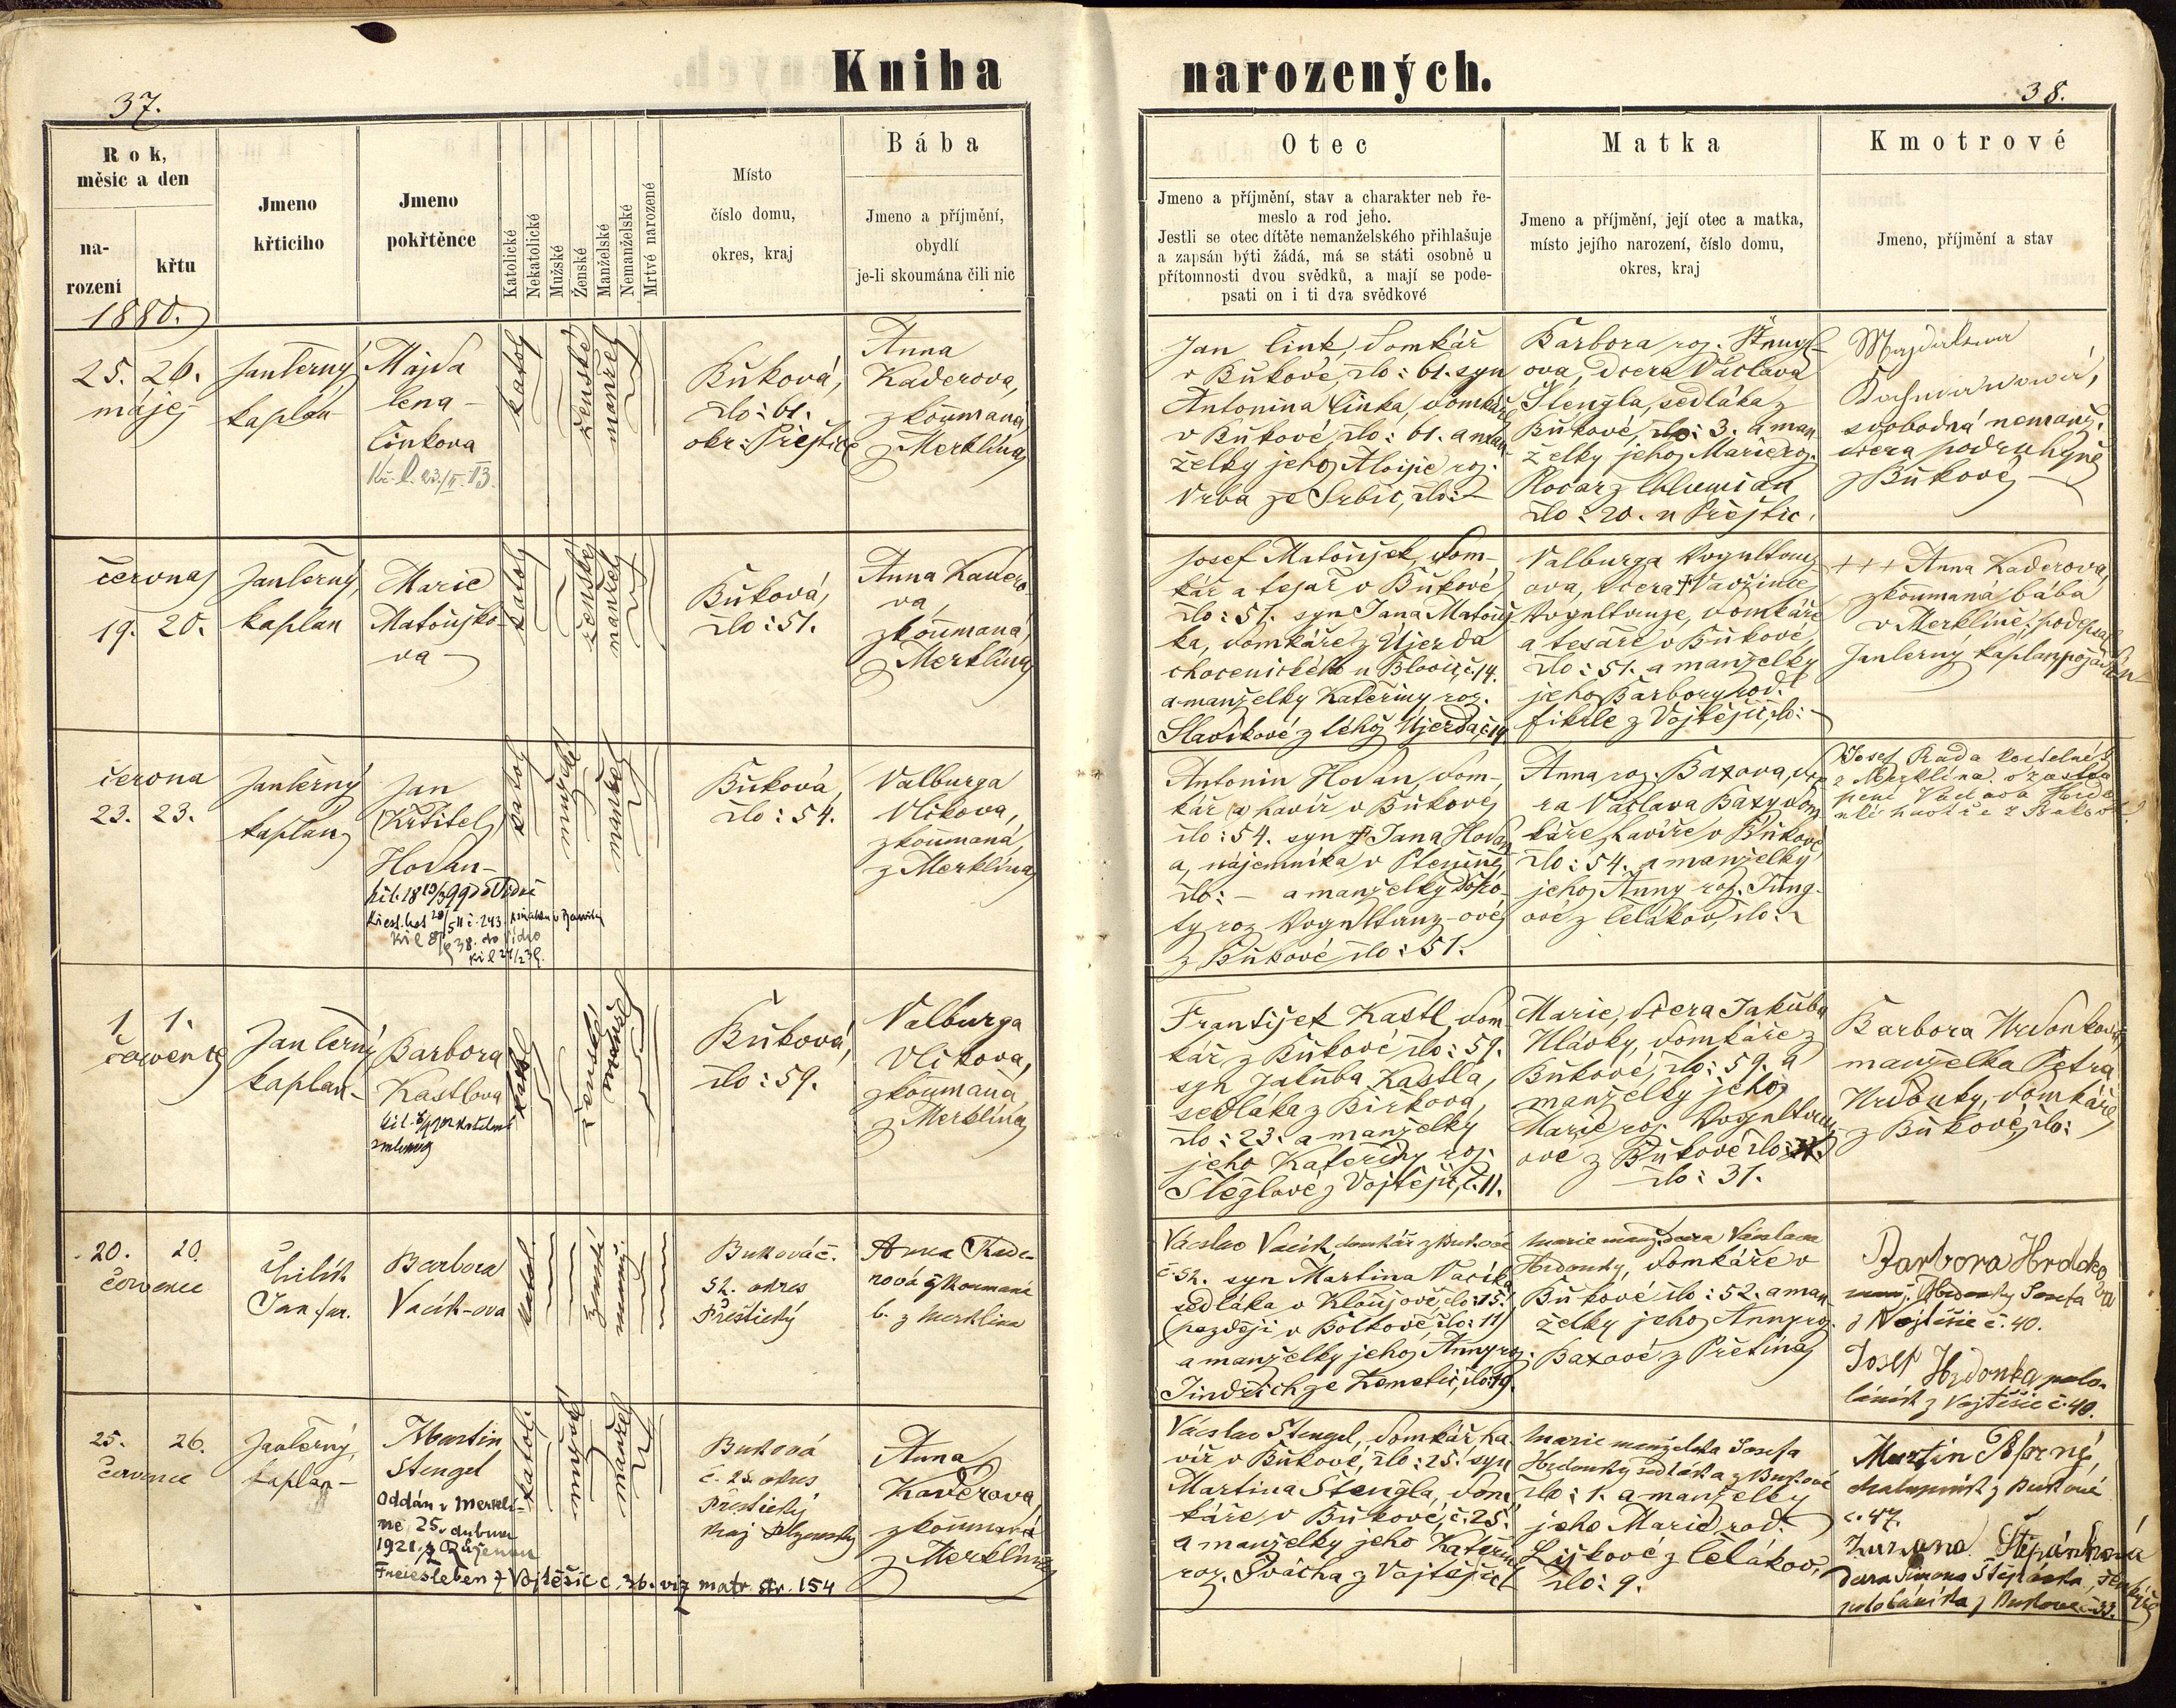 Kniha narozených.
37.
38.
Rok,
měsic a den
na-
rození
křtu
Jmeno
křticiho
Jmeno
pokřtěnce
Katolické
Nekatolické
Mužské
Ženské
Manželské
Nemanželské
Mrtvé narozené
Místo
číslo domu,
okres, kraj
Bába
Jmeno a příjmění,
obydlí
je-li skoumána čili nic
Otec
Jmeno a příjmění, stav a charakter neb ře-
meslo a rod jeho.
Jestli se otec dítěte nemanželského přihlašuje
a zapsán býti žádá, má se státi osobně u
přítomnosti dvou svědků, a mají se pode-
psati on i ti dva svědkové
Matka
Jmeno a příjmění, její otec a matka,
místo jejího narození, číslo domu,
okres, kraj
Kmotrové
Jmeno, příjmění a stav
1880.
25. 26.
Jan Černý
kaplán
Majda
lena
Činkova
katol
ženské
manžel
Buková,
člo: 61.
okr: Přeštice
Anna
Kaderova,
zkoumaná
z Merklína
Jan Cink, domkář
v Bukové, člo: 61. syn
Antonína Cinka, domkáře
v Bukové, člo: 61. a man
želky jeho Aloisie roz.
Vrba ze Srbic, člo: –
Barbora roz. Štengl
ova, dcera Václava
Štengla, sedláka z
Bukové, člo: 3. a man
želky jeho Marie roz.
člo: 20. u Přeštic.
Majdalena
svobodná nemanž.
dcera podruhyně
z Bukové
června
19. 20.
Jan Černý,
kaplan
Marie
Matouško-
va
katol
ženský
manžel
Buková,
člo: 51.
Anna Kadero
va,
zkoumaná
z Merklína
Josef Matoušek, dom-
kář a tesař v Bukové
člo: 51. syn Jana Matouš
ka, domkáře z Újezda
chocenického u Blovic, č. 14.
a manželky Kateřiny roz.
Slavíkové z téhož Újezda č. 14
Valburga Vogneltanz
ova, dcera † Vavřince
Vogneltanze, domkáře
a tesaře v Bukové,
člo: 51. a manželky
jeho Barbory rod.
Fikrle z Vojtěšic, člo: –
+++ Anna Kaderova,
zkoumaná bába
v Merklíně, podepsal
Jan Černý kaplan požádán
června
23. 23.
Jan Černý
kaplán
Jan
(Křtitel)
Hodan
katol
mužské
manžel
Buková,
člo: 54.
Valburga
Vlčkova,
zkoumaná,
z Merklína
Antonín Hodan, dom-
kář a havíř v Bukové
člo: 54. syn † Jana Hodan
a, nájemníka v Ptenině
člo: – a manželky Doro-
ty roz. Vogneltanz-ové
z Bukové člo: 51.
Anna roz. Baxova, dce
ra Václava Baxy dom
káře, havíře v Bukové
člo: 54. a manželky
jeho Anny roz. Jung-
ové z Čelákov, člo:
Josef Rada kostelník
z Merklína
1. 1.
července
Jan Černý
kaplan
Barbora
Kastlova
katol
ženské
manžel
Buková,
člo: 59.
Valburga
Vlčkova,
zkoumaná
z Merklína
František Kastl, dom
kář z Bukové člo: 59.
syn Jakuba Kastla,
sedláka z Birkova,
člo: 23. a manželky
jeho Kateřiny roz.
Steglové z Vojtěšic, č. 11.
Marie, dcera Jakuba
Hlávky, domkáře z
Bukové, člo: 59. a
manželky jeho
Marie roz. Vogneltanz
ové z Bukové
člo: 31.
Barbora Hrdonkova,
manželka Petra
Hrdonky, domkáře
z Bukové, člo:
20. 20.
července
Jan
Barbora
Vacík-ova
katol.
ženské
manž.
Buková č.
52. okres
Přeštický
Anna Kade-
rová zkoumaná
b. z Merklína
Václav Vacík domkář z Bukové
č. 52. syn Martina Vacíka
sedláka v Kloušově, člo: 15.
(později v Bolkově člo: 11)
a manželky jeho Anny roz.
Jindřich ze Zemětic, člo: 19.
Marie manž. dcera Václava
Hrdonky, domkáře v
Bukové člo: 52. a man
želky jeho Anny roz.
Baxové z Přetína
Barbora Hrdoko
vá
Josefa
z Vojtěšic č. 40.
Josef Hrdonka polo-
láník z Vojtěšic č. 40.
25. 26.
července
Jan Černý,
kaplan –
Martin
Štengel
Oddán v Merklí-
ně, 25. dubna
1921, s Růženou
Freiesleben z Vojtěšic č. 36. viz matr. str. 154
katol.
mužské
manžel
Buková
č. 25. okres
Přeštický
kraj Plzenský
Anna
Kaderova,
zkoumaná
z Merklína
Václav Štengel, domkář ha
víř v Bukové, člo: 25. syn
Martina Štengla, dom
káře v Bukové, č. 25.
a manželky jeho Kateřin
roz. Švácha z Vojtěšic
Marie manželka Josefa
Hrdonky sedláka z Bukové
člo: 1. a manželky
jeho Marie rod.
Liškové z Čelákov,
člo: 9.
Martin
chalupník z Bukové
č. 47.
Zuzana Štěpánková
dcera Šimona Štěpánka,
pololáníka z Bukové č. 33.